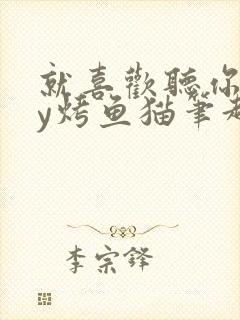 就喜歡聽你
y烤鱼猫笔趣
李宗鋒